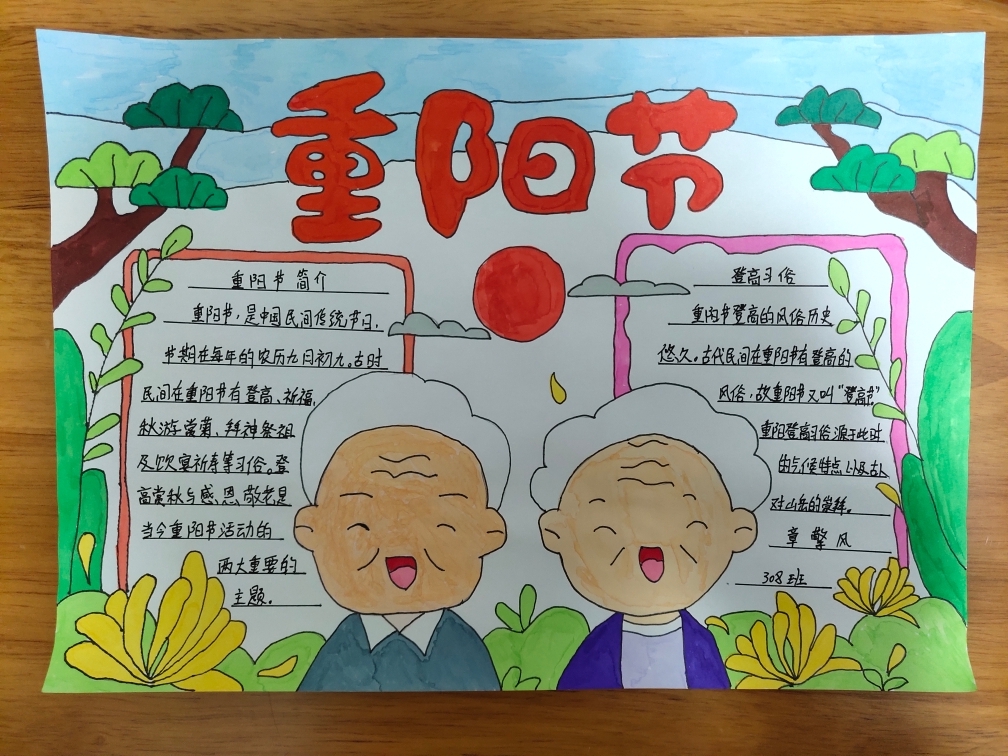 重阳节
重阳节简介
重阳节，是中国民间传统节日，
节期在每年的农历九日初九。古时
民间在重阳节有登高、祈福、
秋游、赏菊、拜神祭祖
及饮宴祈寿等习俗。登
高赏秋与感恩敬老是
当今重阳节活动的
两大重要的
主题。
登高习俗
重阳节登高的风俗历史
悠久。古代民间在重阳节有登高的
风俗，故重阳节又叫“登高节”
重阳登高习俗源于此时
的气候特点以及古人
对山岳的崇拜。
章擎风
308班